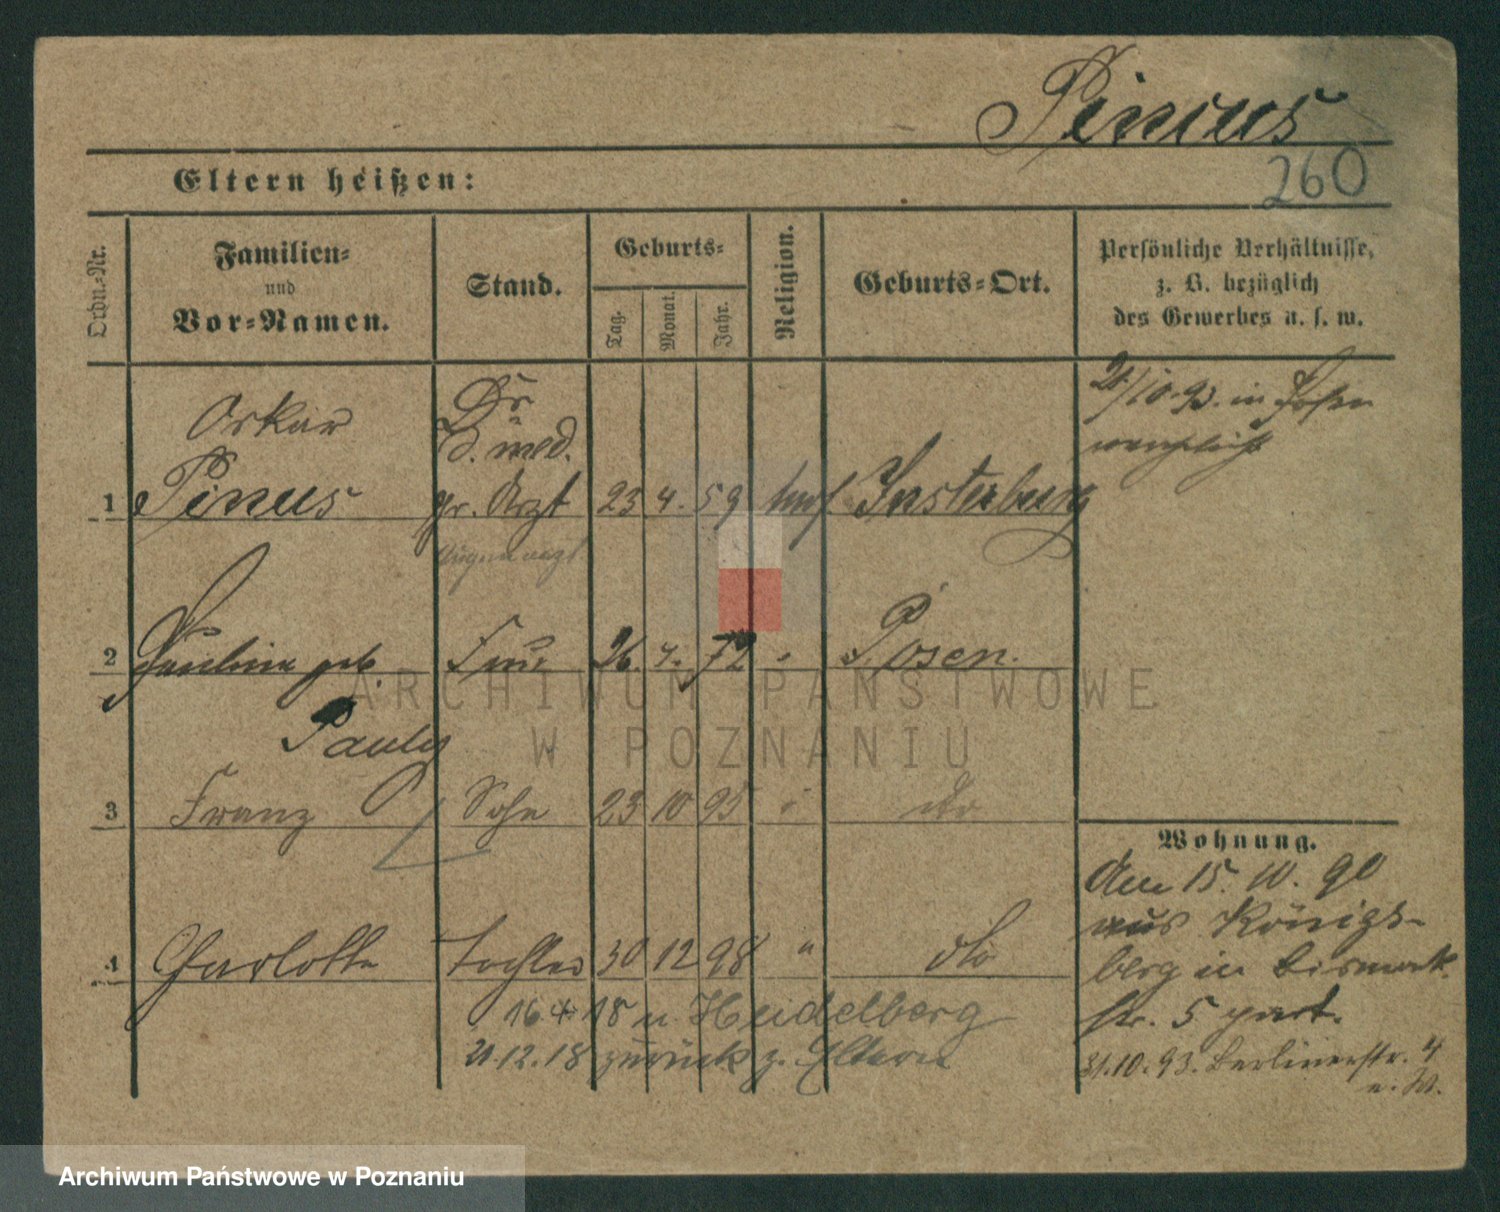 Pincus
260
Eltern heißen:
Ordn.-Nr.
Familien-
und
Vor-Namen.
Stand.
Geburts-
Tag.
Monat.
Jahr.
Religion.
Geburts-Ort.
Persönliche Verhältnisse,
z. B. bezüglich
des Gewerbes u. s. w.
Oskar
Pincus
Dr
med.
pr. Arzt
Augenarzt
1 23 4. 59 mos. Insterburg
10.93. in Posen
verehelicht
2 Pauline geb. Frau 26. 4. 72 " Posen.
Pauly
3 Franz Sohn 23 10 95 " dto
4 Charlotte Tochter 30 12 98 " dto
16.4.18 n. Heidelberg
21.12.18 zurück z. Eltern
Wohnung.
Am 15. 10. 90
aus Königs-
berg in Bismark-
str. 5 part.
31.10.93. Berlinerstr. 4
ARCHIWUM PAŃSTWOWE
W POZNANIU
Archiwum Państwowe w Poznaniu